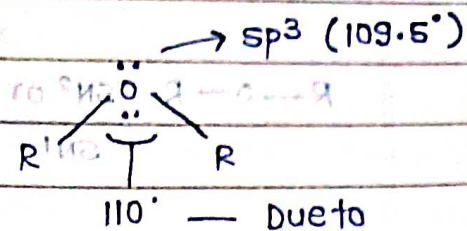 → sp³ (109.5°)
:O:
R' R
110° — Dueto